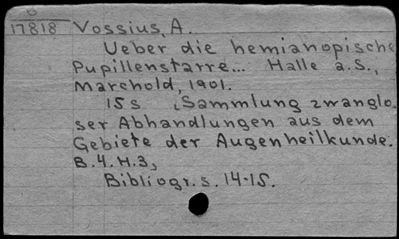 B
17818 Vossius, A.
Ueber die hemianopische
Pupillenstarre... Halle a.S.,
Marchold, 1901.
15 s (Sammlung zwanglo
ser Abhandlungen aus dem
Gebiete der Augenheilkunde.
B.4.H.3,
Bibliogr. s. 14-15.